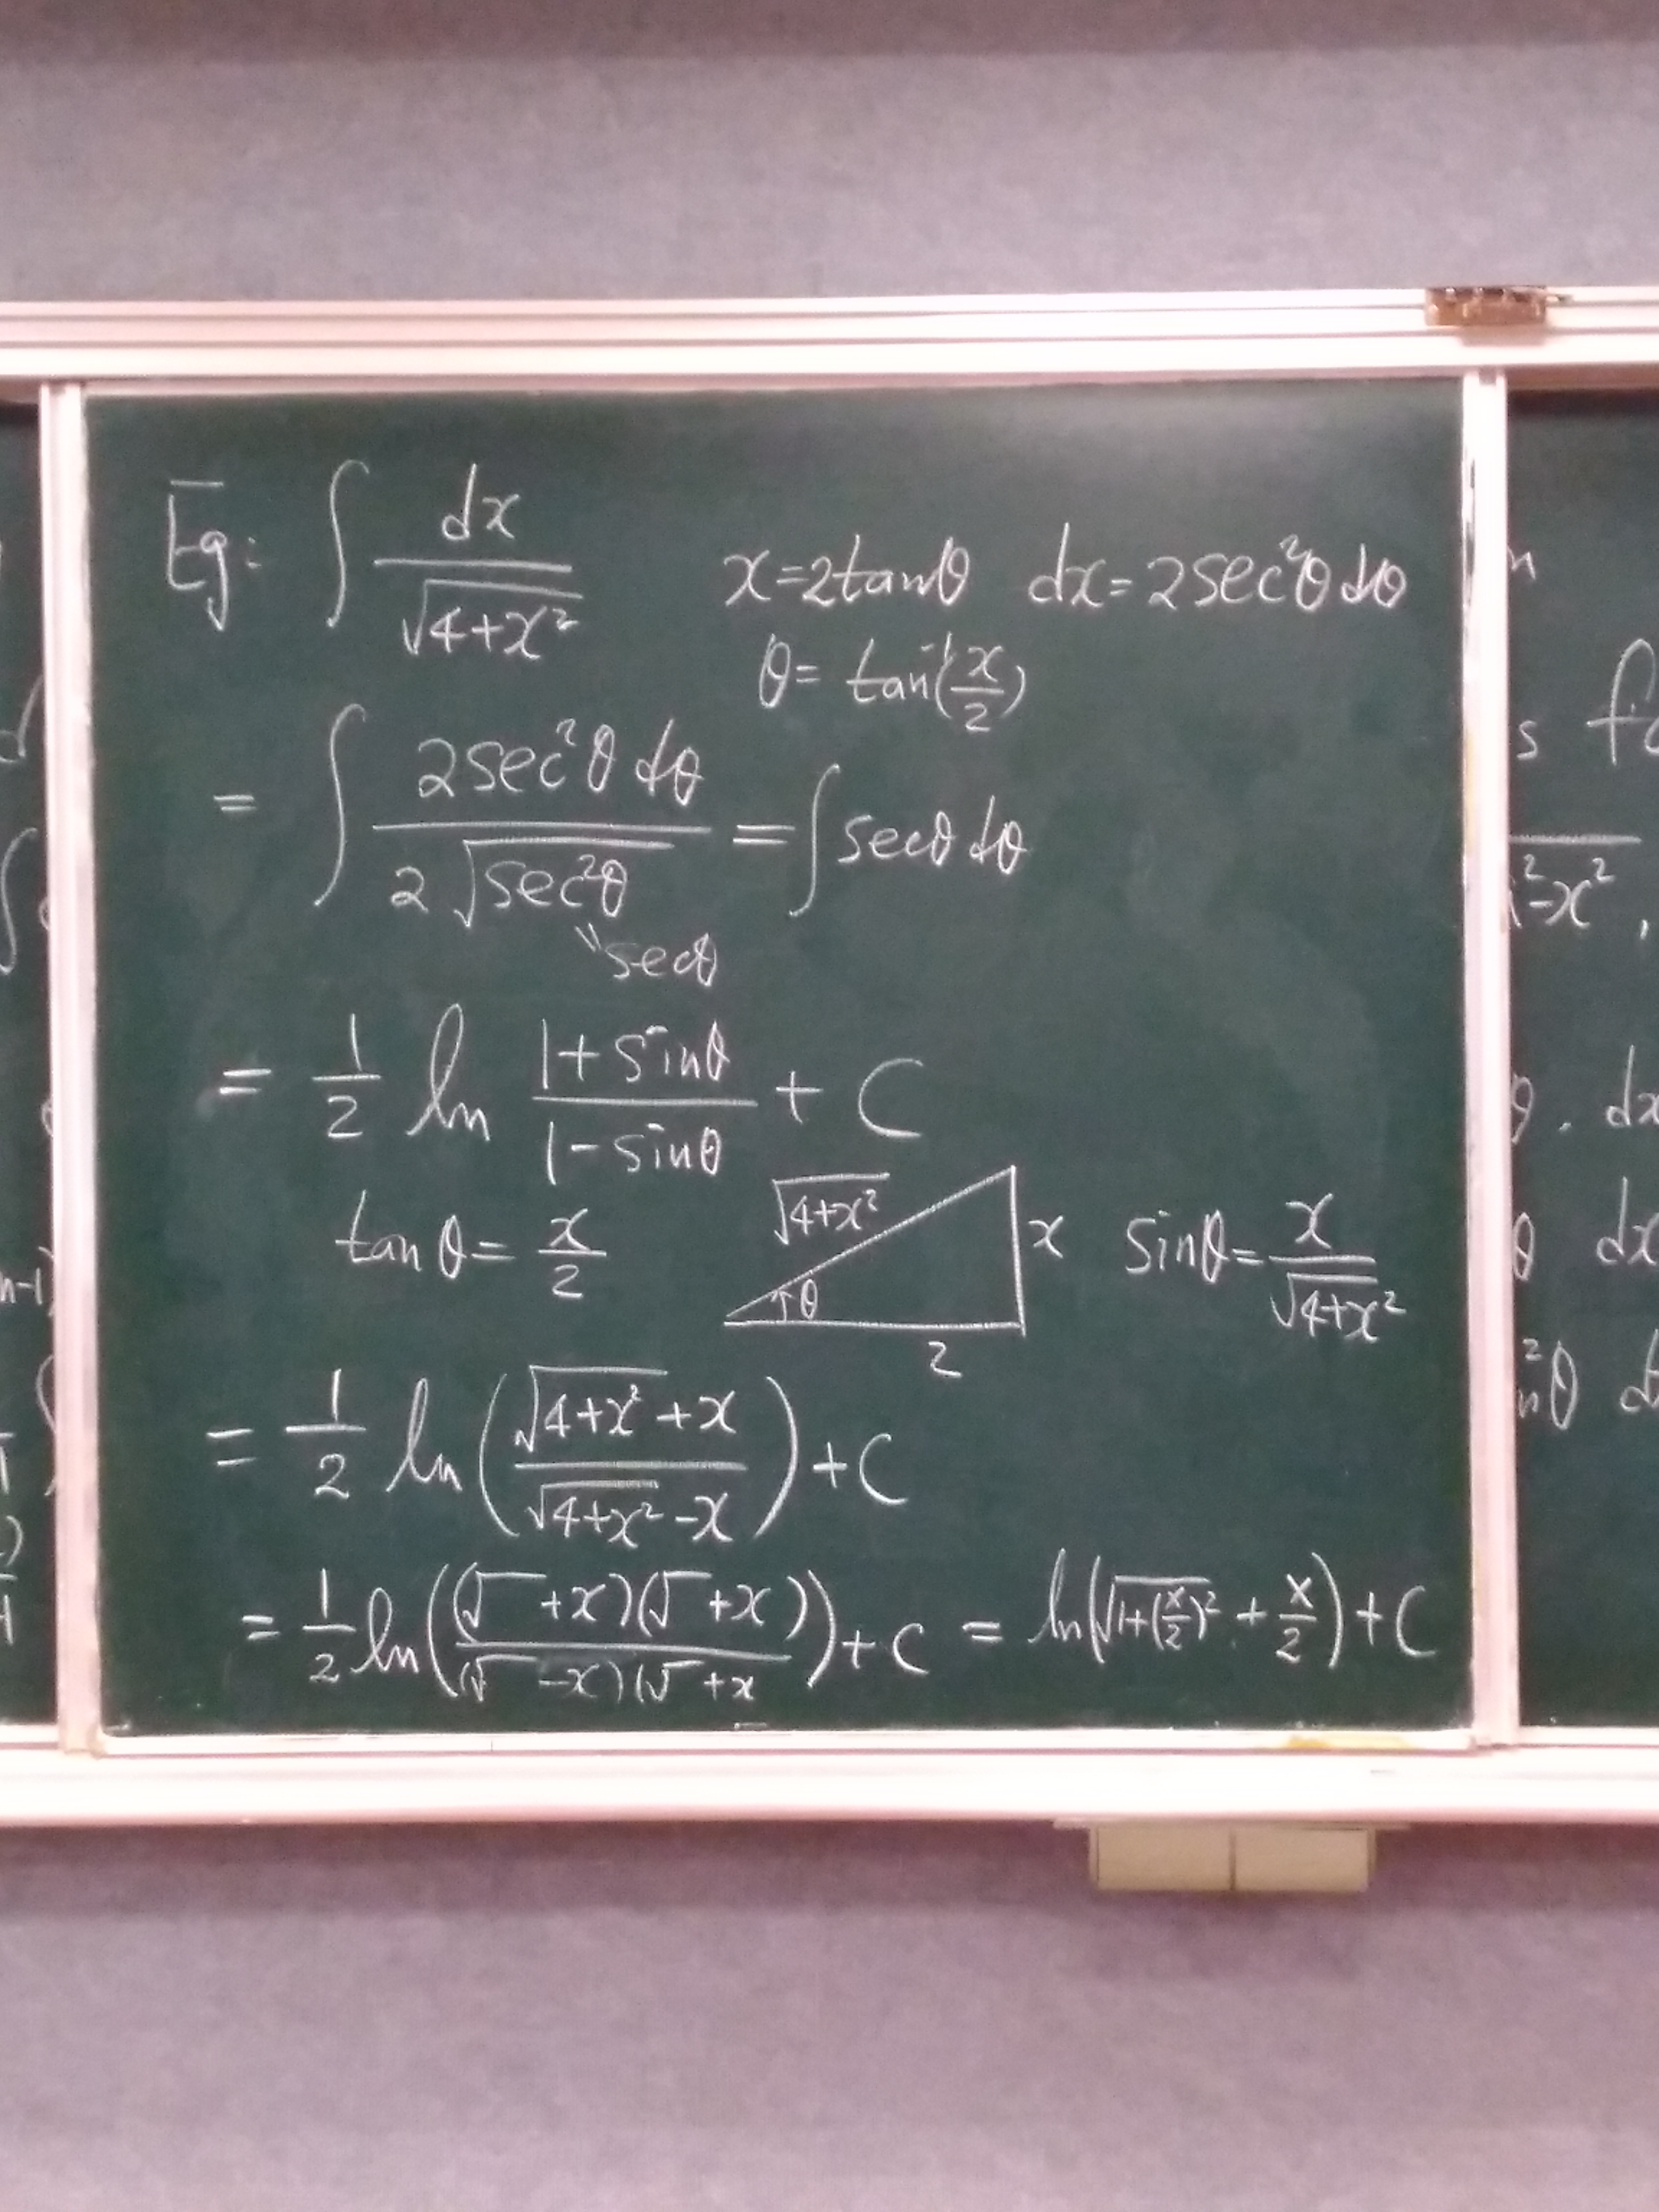 Eg: ∫ dx/√(4+x²) x=2tanθ dx=2sec²θ dθ
θ= tan⁻¹(x/2)
= ∫ 2sec²θ dθ / 2√(sec²θ) = ∫ secθ dθ
"secθ
= 1/2 ln (1+sinθ)/(1-sinθ) + C
tanθ= x/2 √(4+x²) θ x 2 sinθ= x/√(4+x²)
= 1/2 ln( (√(4+x²)+x)/(√(4+x²)-x) )+C
= 1/2 ln( (√ +x)(√ +x) / (√ -x)(√ +x )+C = ln(√(1+(x/2)²) + x/2)+C
s
-x²,
dx
dx